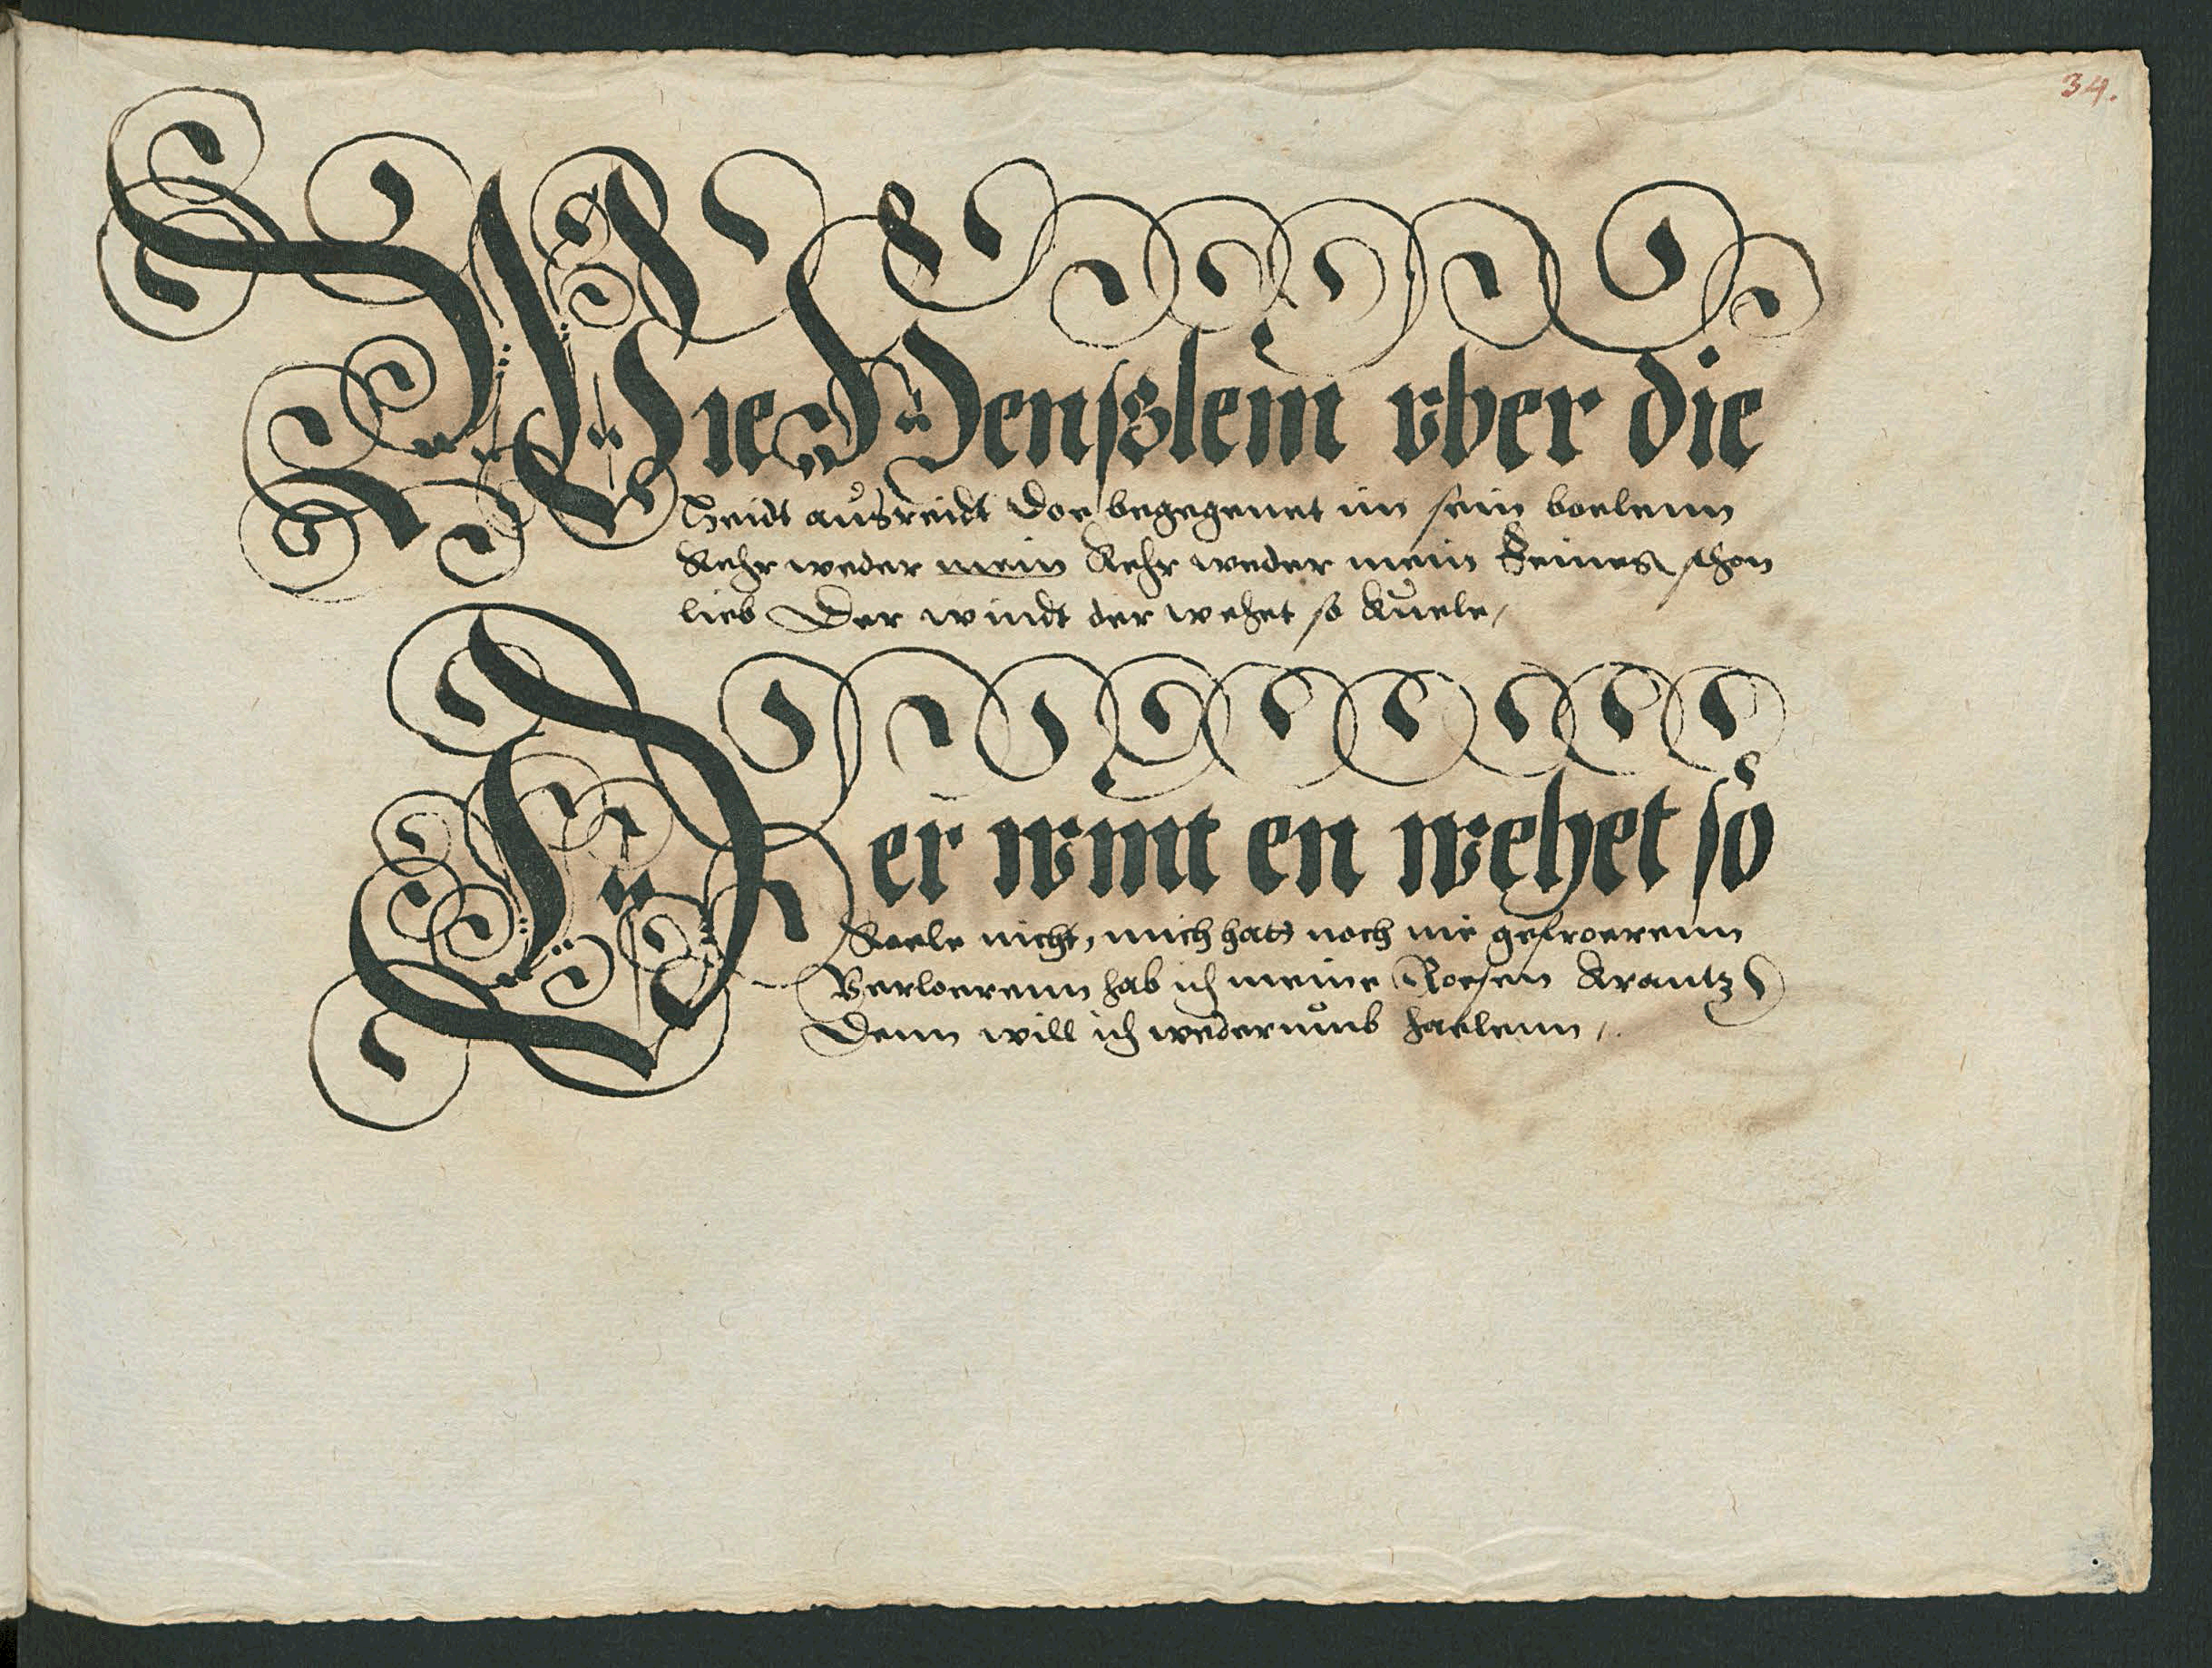 34.
Wie Hensslein vber die
Heidt ausreidt Doe begegenet im sein boelenn
Kehr weder mein Kehr weder mein feines schon
lieb Der windt der wehet so kuele,
Der wint en wehet so
Koele nicht, mich hatt noch nie gefroerenn
Verloerenn hab ich meine Roesen Krantz
Denn will ich wederumb haelenn,